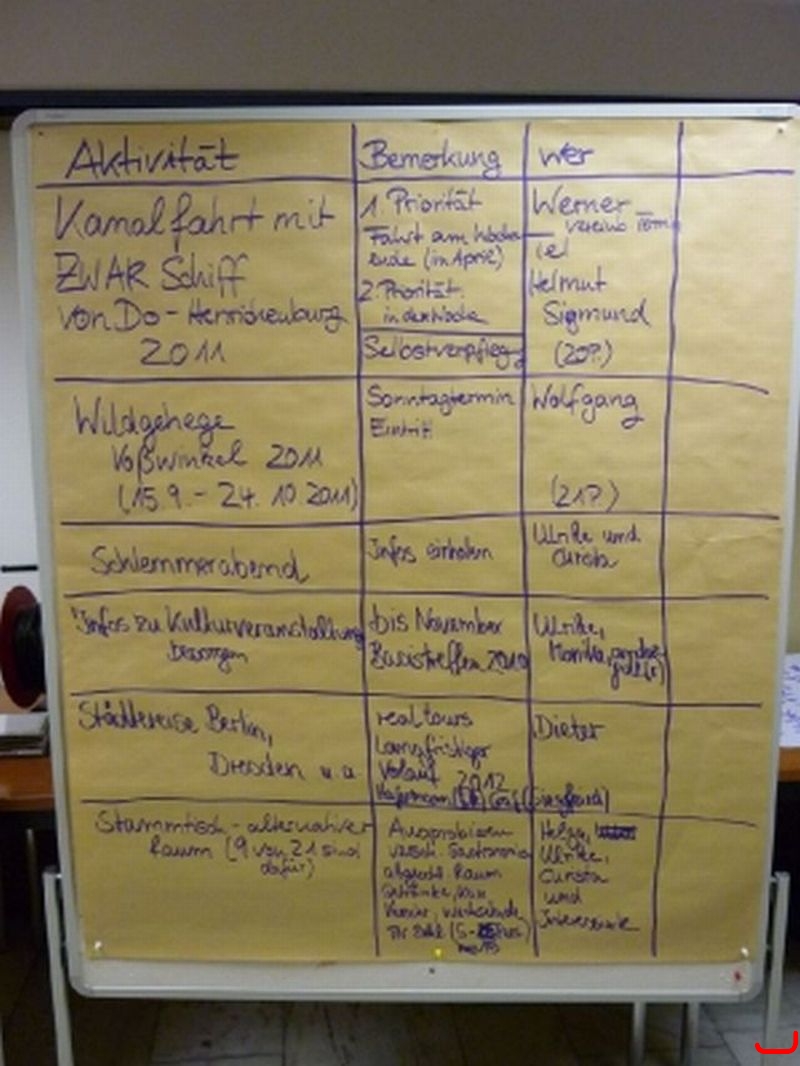 Aktivität
Bemerkung
wer
Kanalfahrt mit
ZWAR Schiff
von Do-Henrichenburg
2011
1. Priorität
Fahrt am Wochen-
ende (in April)
2. Priorität:
in der Woche
Selbstverpfleg
Werner
Helmut
Sigmund
(20?)
Wildgehege
Voßwinkel 2011
(15.9. - 24.10 2011)
Sonntagtermin
Eintritt
Wolfgang
(21?)
Schlemmerabend
Infos einholen
Ulrike und
Infos zu Kulturveranstaltung
besorgen
bis November
Basistreffen 2010
Ulrike,
Monika,
Städtereise Berlin,
Dresden u.a.
realtours
Langfristiger
Vorlauf 2012
Dieter
Stammtisch-alternativer
Raum (9 von 21 sind
dafür)
Ausprobieren
versch. Gastronomie
Raum
Helga,
Ulrike,
und